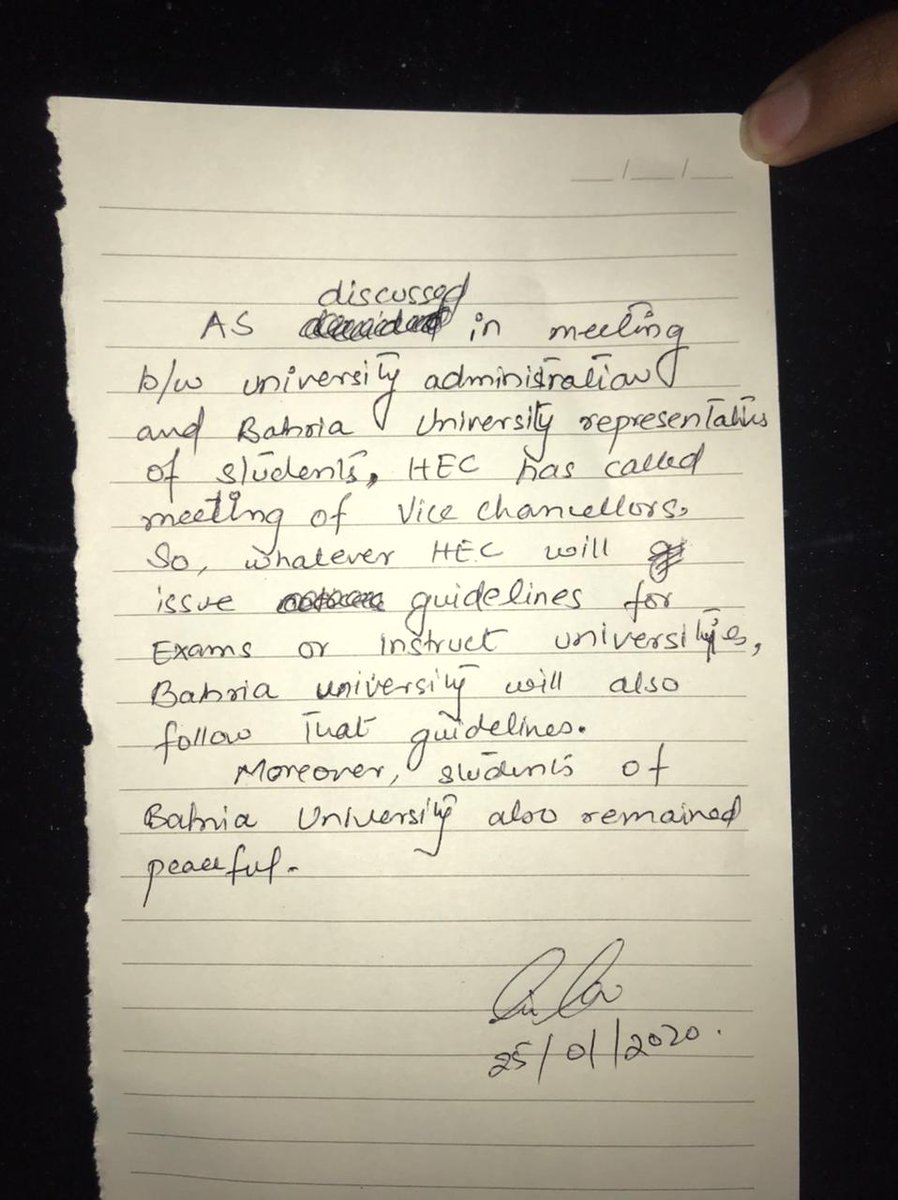 __/__/__
discussed
AS in meeting
b/w university administration
and Bahria University representatives
of students, HEC has called
meeting of Vice chancellors.
So, whatever HEC will
issue guidelines for
Exams or instruct universities,
Bahria university will also
follow that guidelines.
Moreover, students of
Bahria University also remained
peaceful.
25/01/2020.